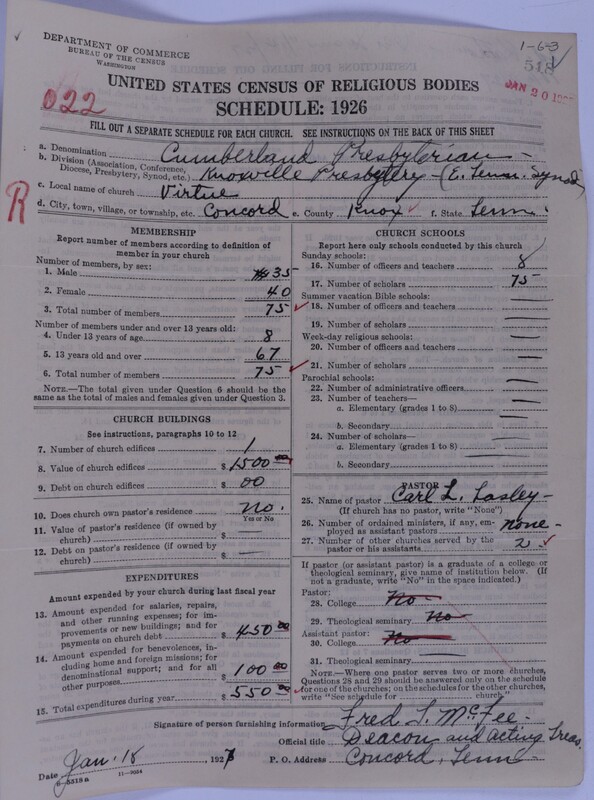 DEPARTMENT OF COMMERCE
BUREAU OF THE CENSUS
WASHINGTON
1-6-3
518
JAN 20
022
UNITED STATES CENSUS OF RELIGIOUS BODIES
SCHEDULE: 1926
FILL OUT A SEPARATE SCHEDULE FOR EACH CHURCH. SEE INSTRUCTIONS ON THE BACK OF THIS SHEET
a. Denomination Cumberland Presbyterian
b. Division (Association, Conference, Diocese, Presbytery, Synod, etc.) Knoxville Presbytery (E. Tenn. Synod
c. Local name of church Virtue
R
d. City, town, village, or township, etc. Concord e. County Knox f. State Tenn.
MEMBERSHIP
Report number of members according to definition of
member in your church
Number of members, by sex:
1. Male 35
2. Female 40
3. Total number of members 75
Number of members under and over 13 years old:
4. Under 13 years of age 8
5. 13 years old and over 67
6. Total number of members 75
NOTE.—The total given under Question 6 should be
same as the total of males and females given under Question 3.
CHURCH BUILDINGS
See instructions, paragraphs 10 to 12
7. Number of church edifices 1
8. Value of church edifices $ 1500 00
9. Debt on church edifices $ 00
10. Does church own pastor's residence? No.
Yes or No
11. Value of pastor's residence (if owned by
church) $
12. Debt on pastor's residence (if owned by
church) $ —
EXPENDITURES
Amount expended by your church during last fiscal year
13. Amount expended for salaries, repairs,
and other running expenses; for im-
provements or new buildings; and for
payments on church debt $ 450 00
14. Amount expended for benevolences, in-
cluding home and foreign missions; for
denominational support; and for all
other purposes $ 100 00
15. Total expenditures during year $ 550 00
CHURCH SCHOOLS
Report here only schools conducted by this church
Sunday schools:
16. Number of officers and teachers 8
17. Number of scholars 75
Summer vacation Bible schools:
18. Number of officers and teachers —
19. Number of scholars —
Week-day religious schools:
20. Number of officers and teachers —
21. Number of scholars —
Parochial schools:
22. Number of administrative officers —
23. Number of teachers—
a. Elementary (grades 1 to 8) —
b. Secondary —
24. Number of scholars—
a. Elementary (grades 1 to 8) —
b. Secondary —
PASTOR
25. Name of pastor Carl L. Lasley
(If church has no pastor, write "None")
26. Number of ordained ministers, if any, em-
ployed as assistant pastors none
27. Number of other churches served by the
pastor or his assistants 2
If pastor (or assistant pastor) is a graduate of a college or
theological seminary, give name of institution below. (If
not a graduate, write "No" in the space indicated.)
Pastor:
28. College No
29. Theological seminary No
Assistant pastor:
30. College No
31. Theological seminary
NOTE.—Where one pastor serves two or more churches,
Questions 28 and 29 should be answered only on the schedule
for one of the churches; on the schedules for the other churches,
write "See schedule for church."
Signature of person furnishing information Fred L. McFee.
Official title Deacon and acting Treas.
Date Jan. 18, 1927 P. O. Address Concord, Tenn
8-5318a 11-9034